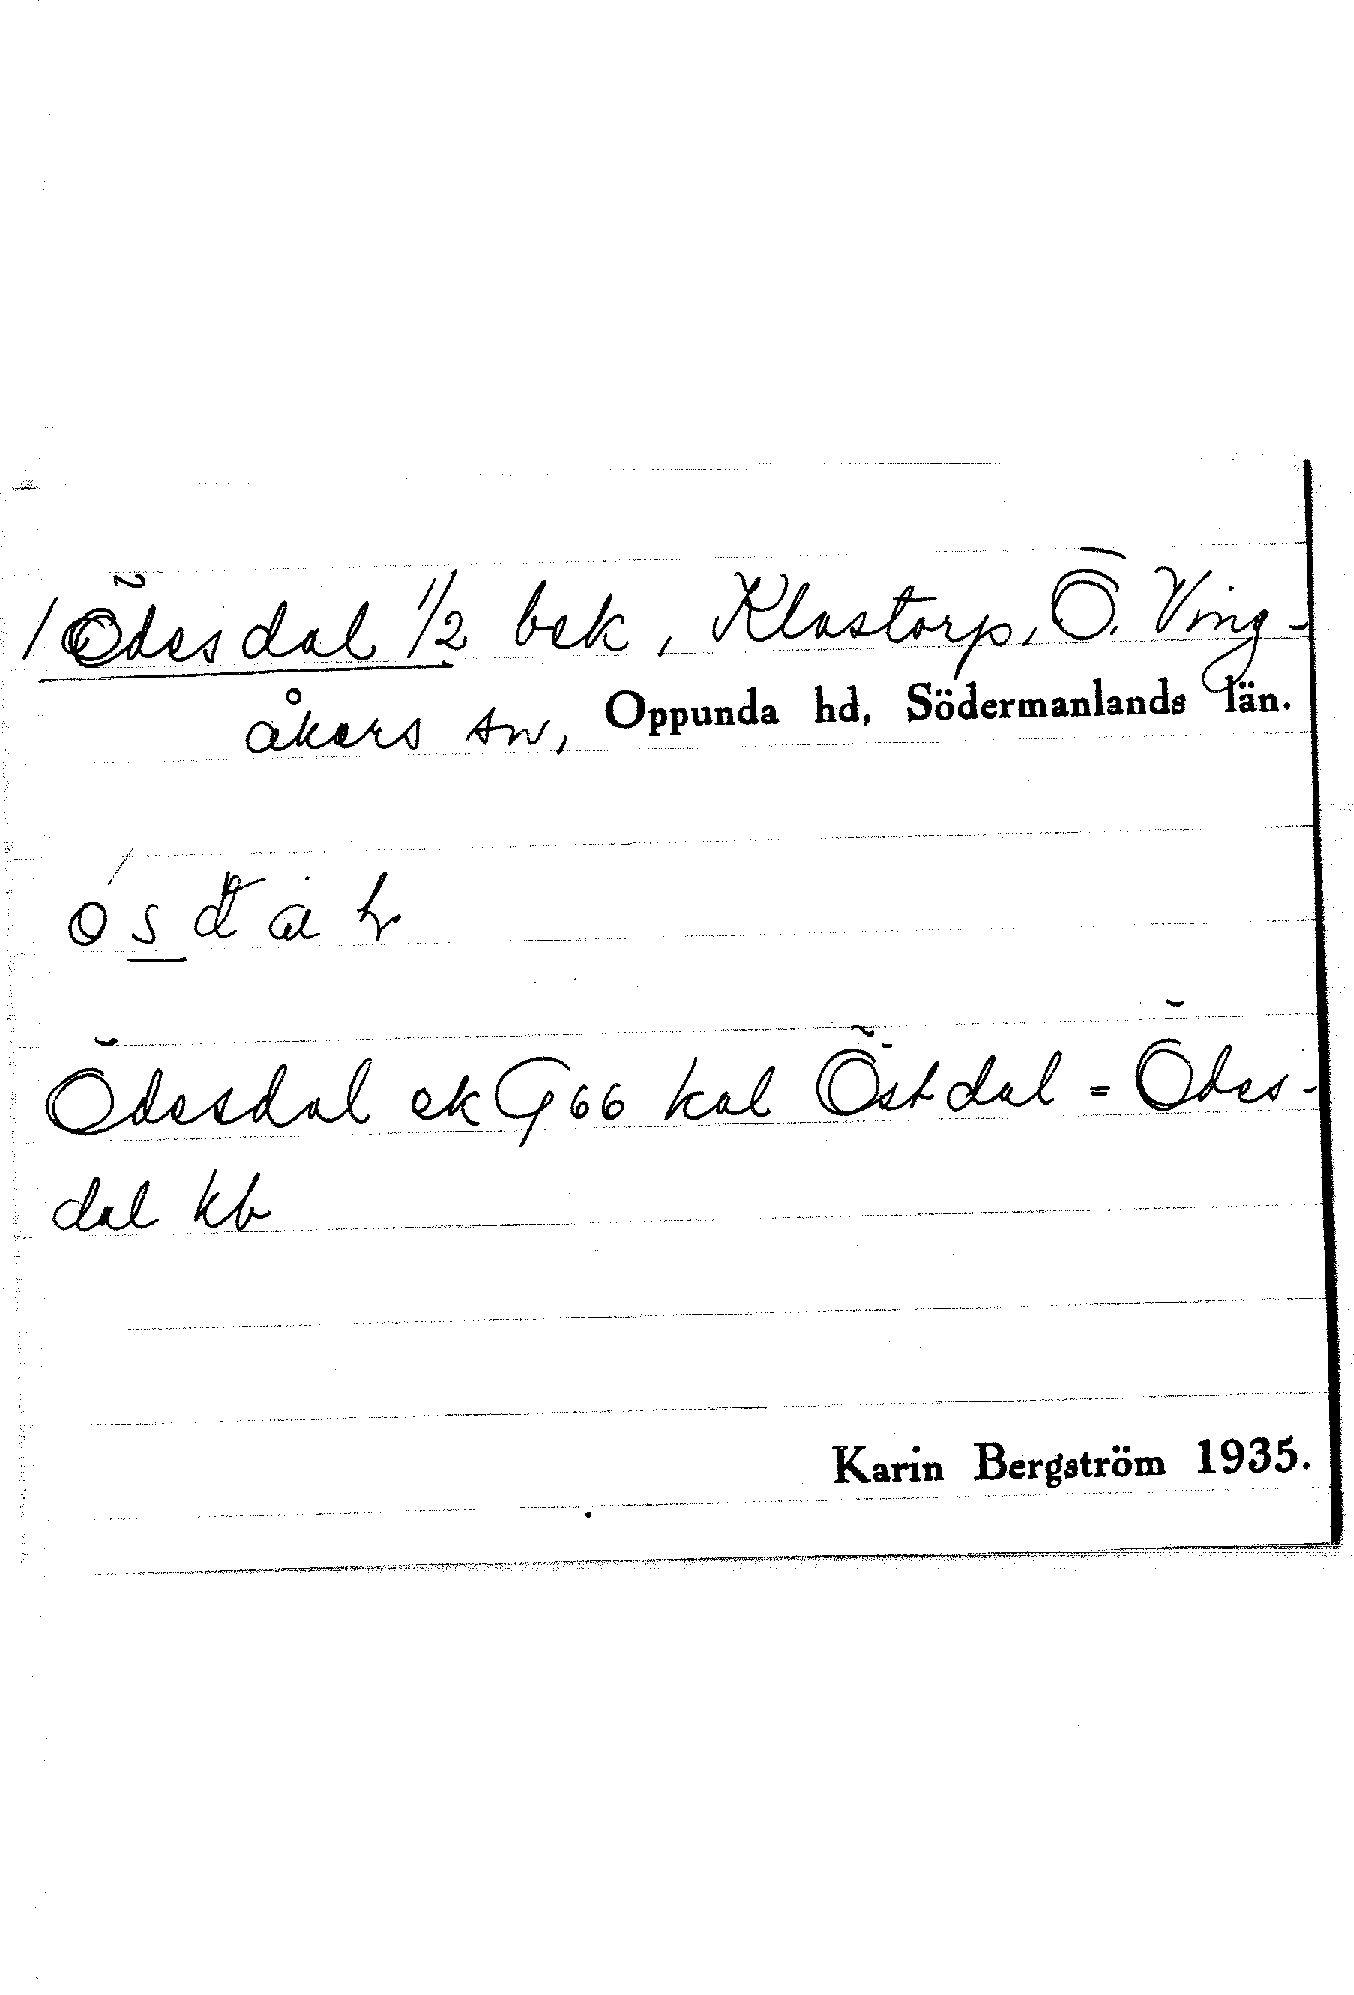 Ödesdal 1/2 bek, Klastorp, Ö. Ving-
åkers sn, Oppunda hd, Södermanlands län.
Ödesdal ek G 66 kal Östdal = Ödes-
dal kb
Karin Bergström 1935.